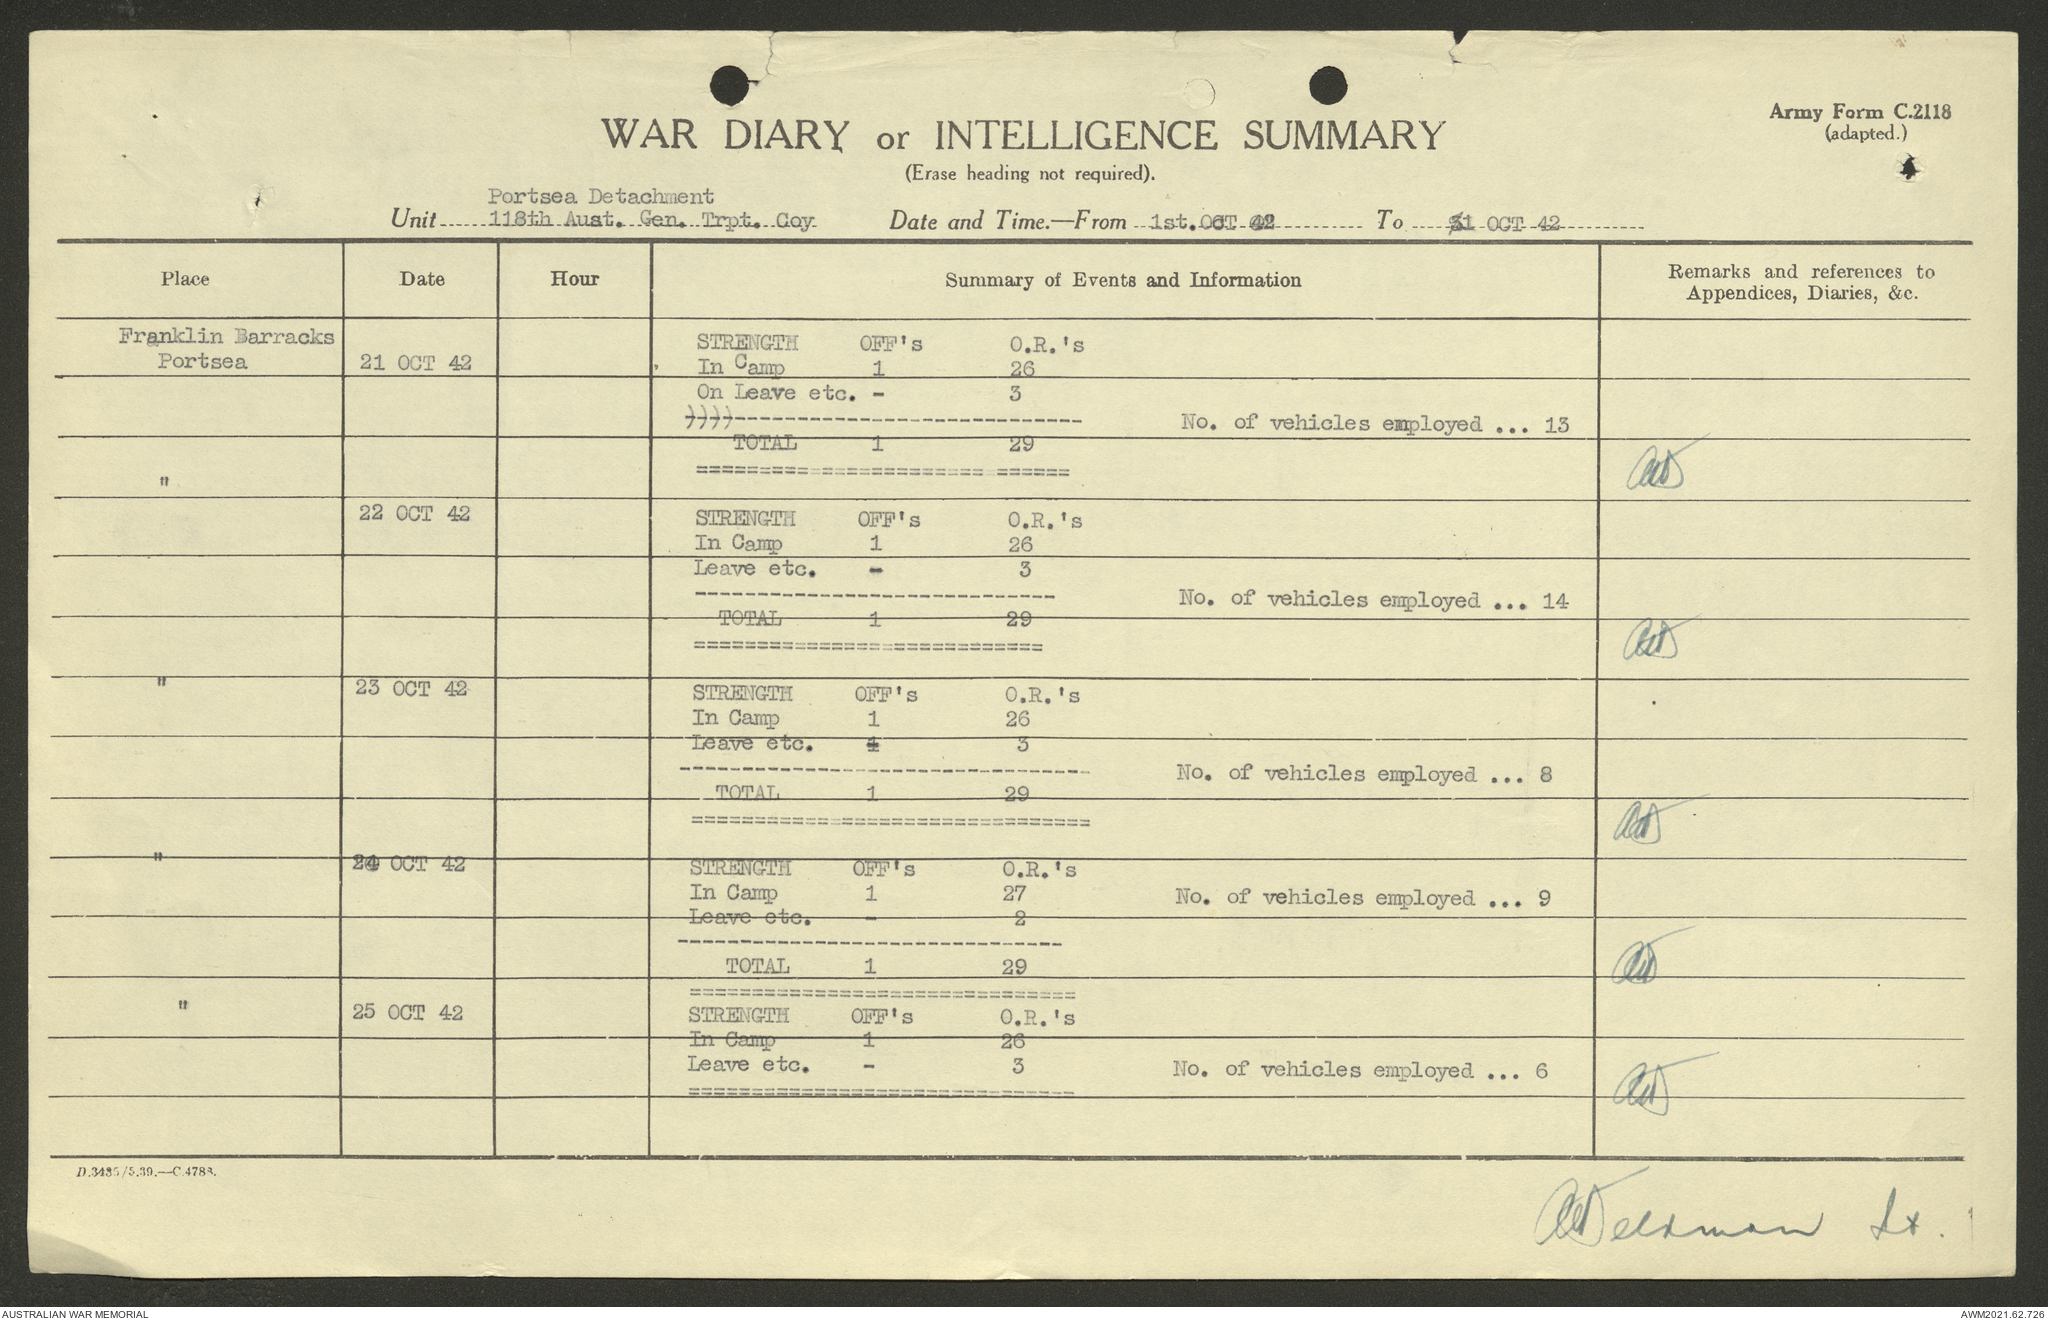 Army Form C.2118
(adapted.)
WAR DIARY or INTELLIGENCE SUMMARY
(Erase heading not required).
Portsea Detachment
Unit 118th Aust. Gen. Trpt. Coy Date and Time.—From 1st. OCT 42 To 31 OCT 42
Place Date Hour Summary of Events and Information Remarks and references to
Appendices, Diaries, &c.
Franklin Barracks STRENGTH OFF's O.R.'s
Portsea 21 OCT 42 In Camp 1 26
On Leave etc. - 3
))))---------------------------- No. of vehicles employed ... 13
TOTAL 1 29
======================= ======
"
22 OCT 42 STRENGTH OFF's O.R.'s
In Camp 1 26
Leave etc. - 3
----------------------------- No. of vehicles employed ... 14
TOTAL 1 29
============================
" 23 OCT 42 STRENGTH OFF's O.R.'s
In Camp 1 26
Leave etc. 3
--------------------------------- No. of vehicles employed ... 8
TOTAL 1 29
================================
" 24 OCT 42 STRENGTH OFF's O.R.'s
In Camp 1 27 No. of vehicles employed ... 9
Leave etc. - 2
-------------------------------
TOTAL 1 29
===============================
" 25 OCT 42 STRENGTH OFF's O.R.'s
In Camp 1 26
Leave etc. - 3 No. of vehicles employed ... 6
===============================
D.3486/5.39.—C.4788.
Lt.
AUSTRALIAN WAR MEMORIAL AWM2021.62.726